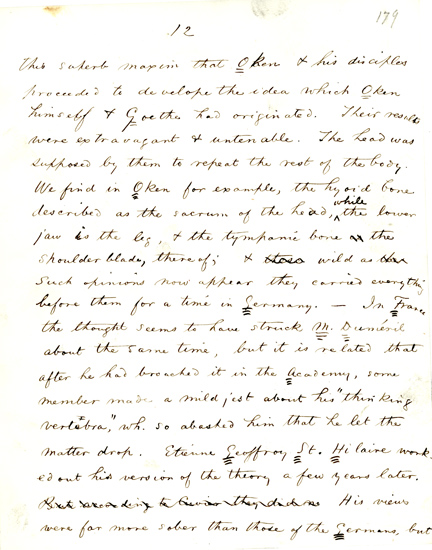 179
12
this superb maxim that Oken & his disciples
proceeded to develope the idea which Oken
himself & Goethe had originated. Their results
were extravagant & untenable. The head was
supposed by them to repeat the rest of the body.
We find in Oken for example, the hyoid bone
described as the sacrum of the head, while the lower
jaw is the leg, & the tympanic bone the
shoulder blade, thereof; & wild as
such opinions now appear they carried everything
before them for a time in Germany. — In France
the thought seems to have struck M. Duméril
about the same time, but it is related that
after he had broached it in the Academy, some
member made a mild jest about his "thinking
vertebra," wh. so abashed him that he let the
matter drop. Etienne Geoffroy St. Hilaire work-
ed out his version of the theory a few years later.
But according to Cuvier they did so His views
were far more sober than those of the Germans, but